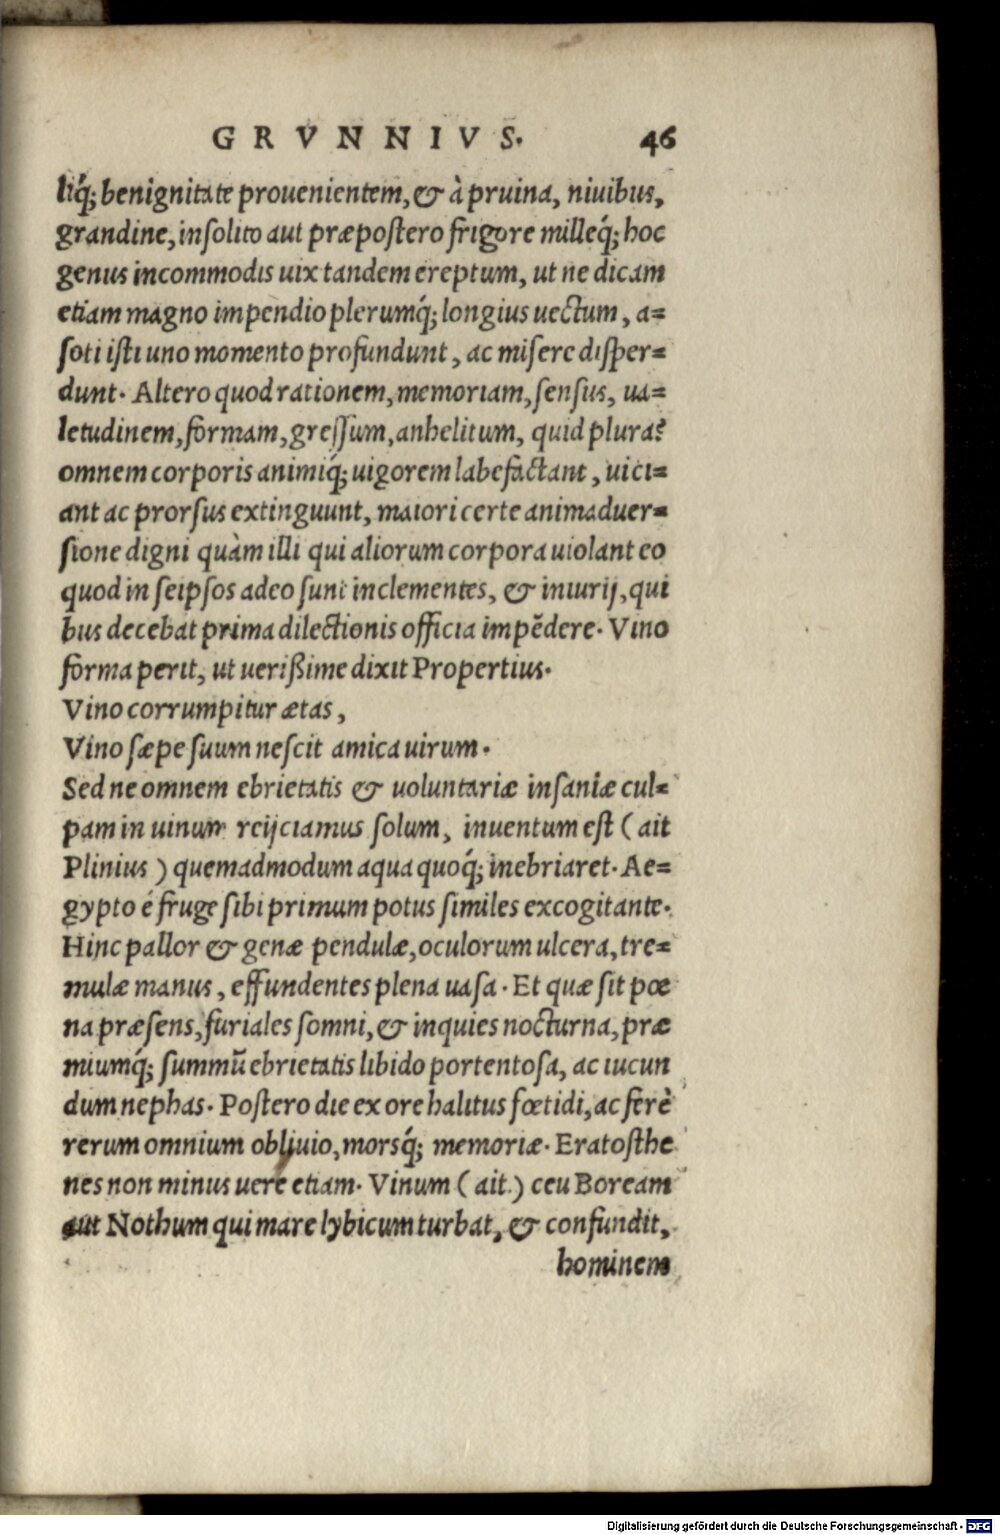 GRVNNIVS. 46
liq́; benignitate prouenientem, & à pruina, niuibus,
grandine, insolito aut præpostero frigore milleq́; hoc
genus incommodis uix tandem ereptum, ut ne dicam
etiam magno impendio plerumq́; longius uectum, a=
soti isti uno momento profundunt, ac misere disper=
dunt. Altero quod rationem, memoriam, sensus, ua=
letudinem, formam, gressum, anhelitum, quid plura?
omnem corporis animiq́; uigorem labefactant, uici=
ant ac prorsus extinguunt, maiori certe animaduer=
sione digni quàm illi qui aliorum corpora uiolant eo
quod in seipsos adeo sunt inclementes, & iniurij, qui
bus decebat prima dilectionis officia impẽdere. Vino
forma perit, ut uerißime dixit Propertius.
Vino corrumpitur ætas,
Vino sæpe suum nescit amica uirum.
Sed ne omnem ebrietatis & uoluntariæ insaniæ cul=
pam in uinum reijciamus solum, inuentum est (ait
Plinius) quemadmodum aqua quoq́; inebriaret. Ae=
gypto é fruge sibi primum potus similes excogitante.
Hinc pallor & genæ pendulæ, oculorum ulcera, tre=
mulæ manus, effundentes plena uasa. Et quæ sit pœ
na præsens, furiales somni, & inquies nocturna, præ
miumq́; summũ ebrietatis libido portentosa, ac iucun
dum nephas. Postero die ex ore halitus fœtidi, ac ferè
rerum omnium obliuio, morsq́; memoriæ. Eratosthe
nes non minus uere etiam. Vinum (ait) ceu Boream
aut Nothum qui mare lybicum turbat, & confundit,
hominem
Digitalisierung gefördert durch die Deutsche Forschungsgemeinschaft - DFG